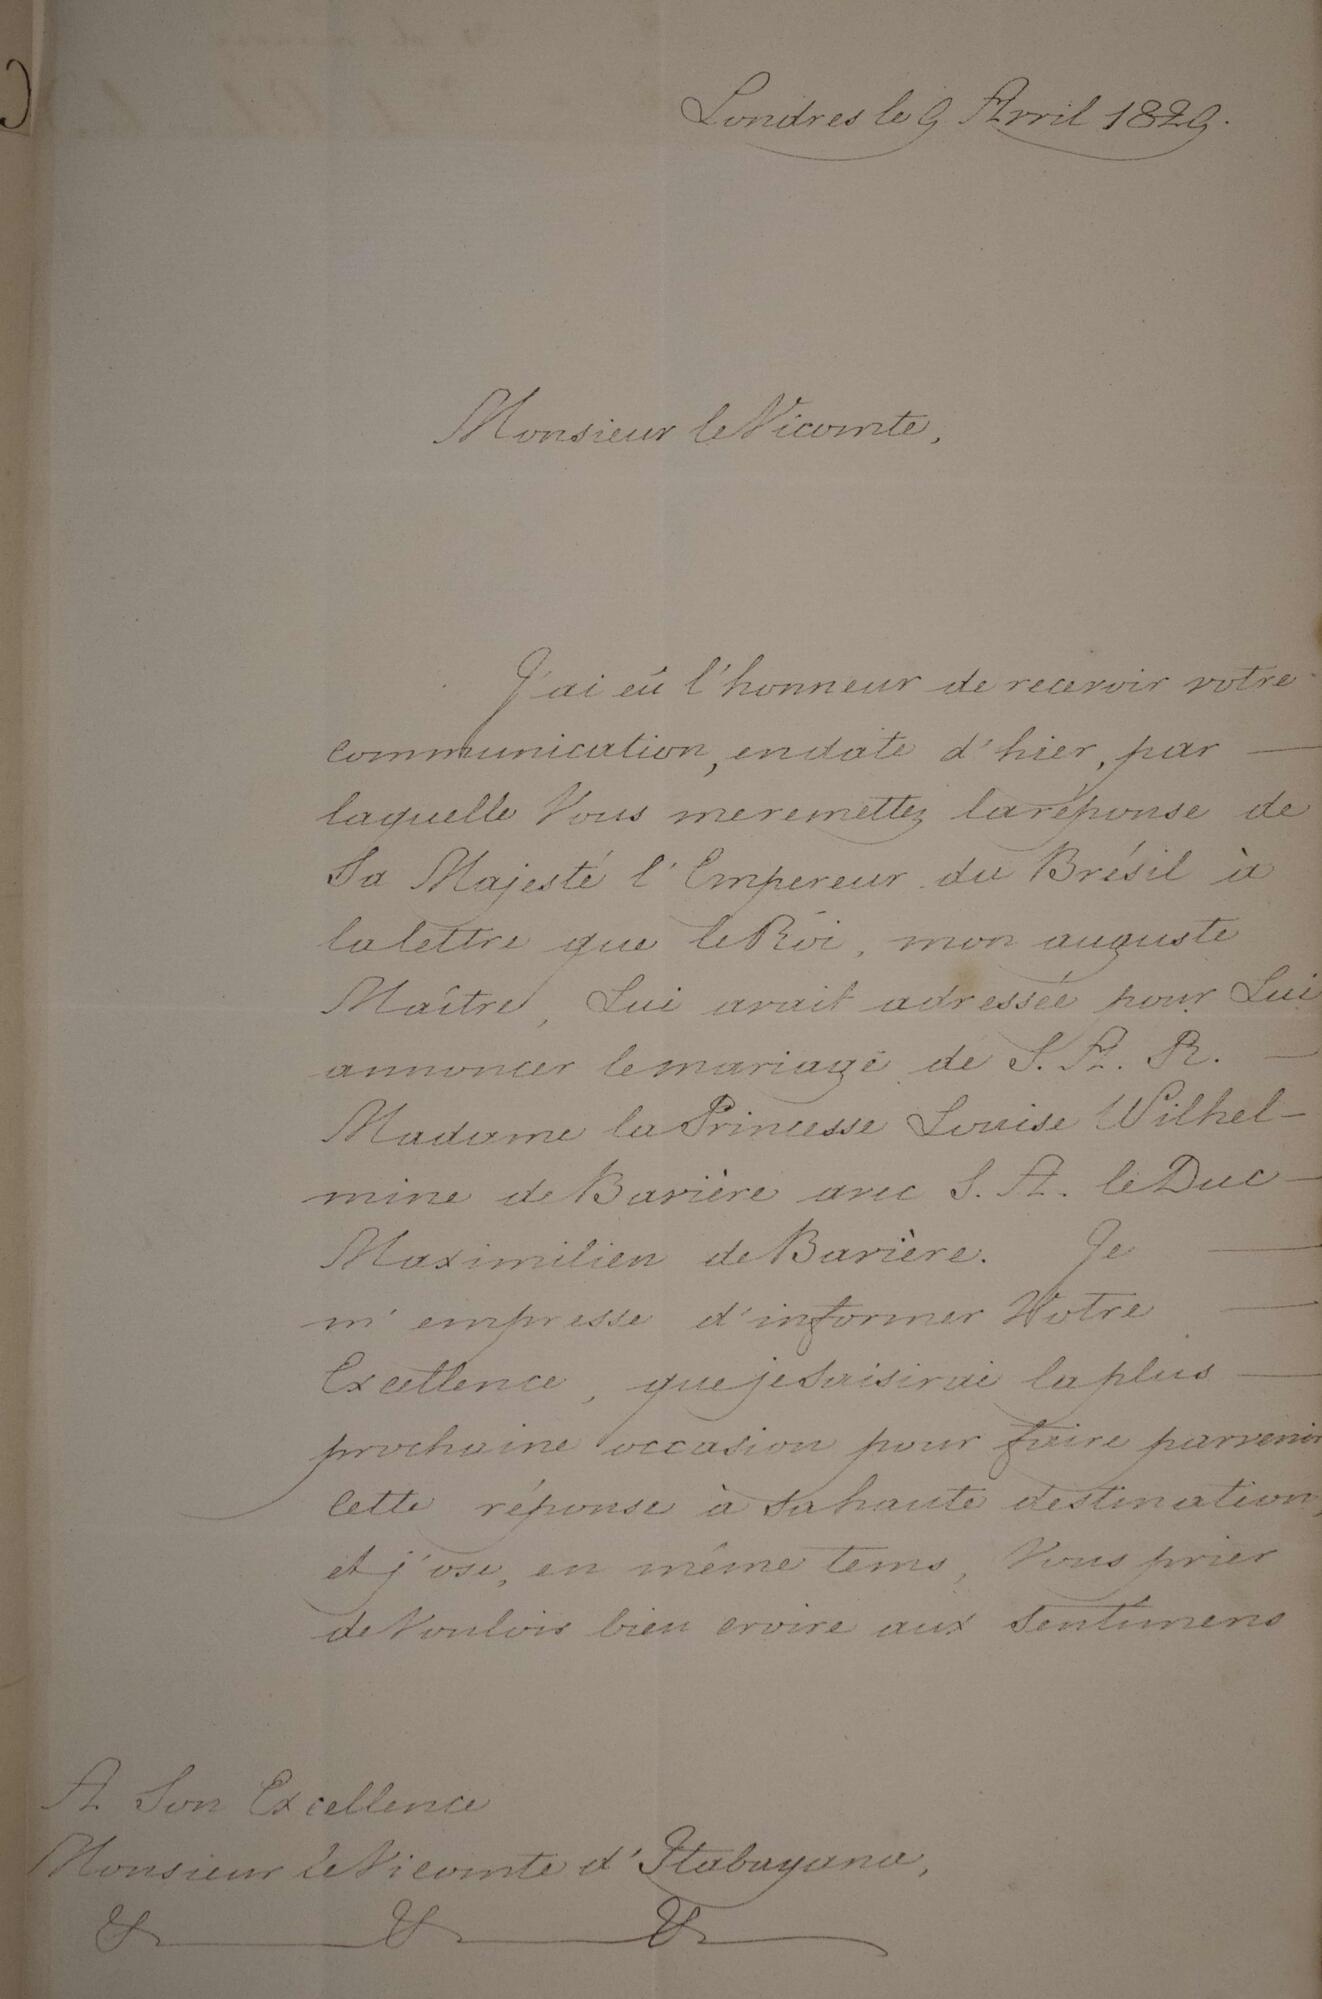 Londres le 9 Avril 1829.
Monsieur le Vicomte,
J'ai eû l'honneur de recevoir votre
communication, en date d'hier, par —
laquelle Vous me remettez la réponse de
Sa Majesté l'Empereur du Brésil à
la lettre que le Roi, mon auguste
Maître, Lui avait adressée pour Lui
annoncer le mariage de S. A. R. —
Madame la Princesse Louise Wilhel-
mine de Bavière avec S. A. le Duc —
Maximilien de Bavière. Je —
m'empresse d'informer Votre —
Excellence, que je saisirai la plus —
prochaine occasion pour faire parvenir
cette réponse à sa haute destination,
et j'ose, en même tems, Vous prier
de Vouloir bien croire aux sentimens
A Son Excellence
Monsieur le Vicomte d'Itabayana,
&c &c &c